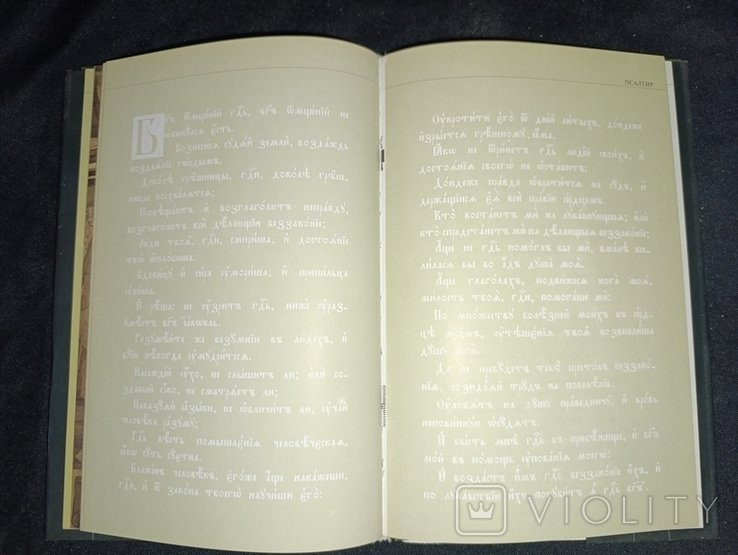 Бг҃ъ ѿмще́нїй гд҇ь, бг҃ъ ѿмще́нїй не
ѡ҆бинꙋ́лсѧ є҆́сть.
Вознеси́сѧ сꙋдѧ́й землѝ, возда́ждь
воздаѧ́нїе гѡ́рдымъ.
Доко́лѣ грѣ̑шницы, гд҇и, доко́лѣ грѣ̑ш-
ницы восхва́лѧтсѧ;
Провѣща́ютъ и҆ возглаго́лютъ непра́вдꙋ,
возглаго́лютъ всѝ дѣ́лающїи беззако́нїе;
Лю́ди твоѧ̑, гд҇и, смири́ша, и҆ достоѧ́нїе
твоѐ ѡ҆ѕло́биша:
Вдови́цꙋ и҆ си́ра ᲂу҆мори́ша, и҆ прише́льца
ᲂу҆би́ша.
И҆ рѣ́ша: не ᲂу҆́зритъ гд҇ь, нижѐ ᲂу҆разꙋ-
мѣ́етъ бг҃ъ і҆а́кѡвль.
Разꙋмѣ́йте же безꙋ́мнїи въ лю́дехъ, и҆
бꙋ́їи нѣ́когда ᲂу҆мꙋдри́тесѧ.
Насажде́й ᲂу҆́хо, не слы́шитъ ли; и҆лѝ соз-
да́вый ѻ҆́ко, не сматрѧ́етъ ли;
Наказꙋ́ѧй ꙗ҆зы́ки, не ѡ҆бличи́тъ ли, ᲂу҆ча́й
человѣ́ка ра́зꙋмꙋ;
Гд҇ь вѣ́сть помышлє́нїѧ человѣ́чєскаѧ,
ꙗ҆́кѡ сꙋ́ть сꙋ́єтна.
Бл҃же́нъ человѣ́къ, є҆го́же а҆́ще нака́жеши,
гд҇и, и҆ ѿ зако́на твоегѡ̀ наꙋчи́ши є҆го̀:
ПСАЛТИР
Оу҆кроти́ти є҆го̀ ѿ дні́й лю́тыхъ, до́ндеже
и҆зры́етсѧ грѣ́шномꙋ ꙗ҆́ма.
Ꙗ҆́кѡ не ѿри́нетъ гд҇ь люді́й свои́хъ, и҆
достоѧ́нїѧ своегѡ̀ не ѡ҆ста́витъ.
До́ндеже пра́вда ѡ҆брати́тсѧ на сꙋ́дъ, и҆
держа́щїисѧ є҆ѧ̀ всѝ пра́вїи се́рдцемъ.
Кто̀ воста́нетъ мѝ на лꙋка́внꙋющыѧ; и҆лѝ
кто̀ спредста́нетъ мѝ на дѣ́лающыѧ беззако́нїе;
А҆́ще не гд҇ь помо́глъ бы мѝ, вма́лѣ все-
ли́ласѧ бы во а҆́дъ дꙋша̀ моѧ̀.
А҆́ще глаго́лахъ, подви́жесѧ нога̀ моѧ̀,
ми́лость твоѧ̀, гд҇и, помога́ше мѝ:
По мно́жествꙋ болѣ́зней мои́хъ въ се́рд-
цѣ мое́мъ, ᲂу҆тѣшє́нїѧ твоѧ̑ возвесели́ша
дꙋ́шꙋ мою̀.
Да не прибꙋ́детъ тебѣ̀ престо́лъ беззако́-
нїѧ, созида́ѧй трꙋ́дъ на повелѣ́нїе.
Оу҆ловѧ́тъ на дꙋ́шꙋ пра́ведничꙋ, и҆ кро́вь
непови́ннꙋю ѡ҆сꙋ́дѧтъ.
И҆ бы́сть мнѣ̀ гд҇ь въ прибѣ́жище, и҆ бг҃ъ
мо́й въ по́мощь ᲂу҆пова́нїѧ моегѡ̀:
И҆ возда́стъ и҆̀мъ гд҇ь беззако́нїе и҆́хъ, и҆
по лꙋка́вствїю и҆́хъ погꙋби́тъ ѧ҆̀ гд҇ь бг҃ъ.
VIOLITY